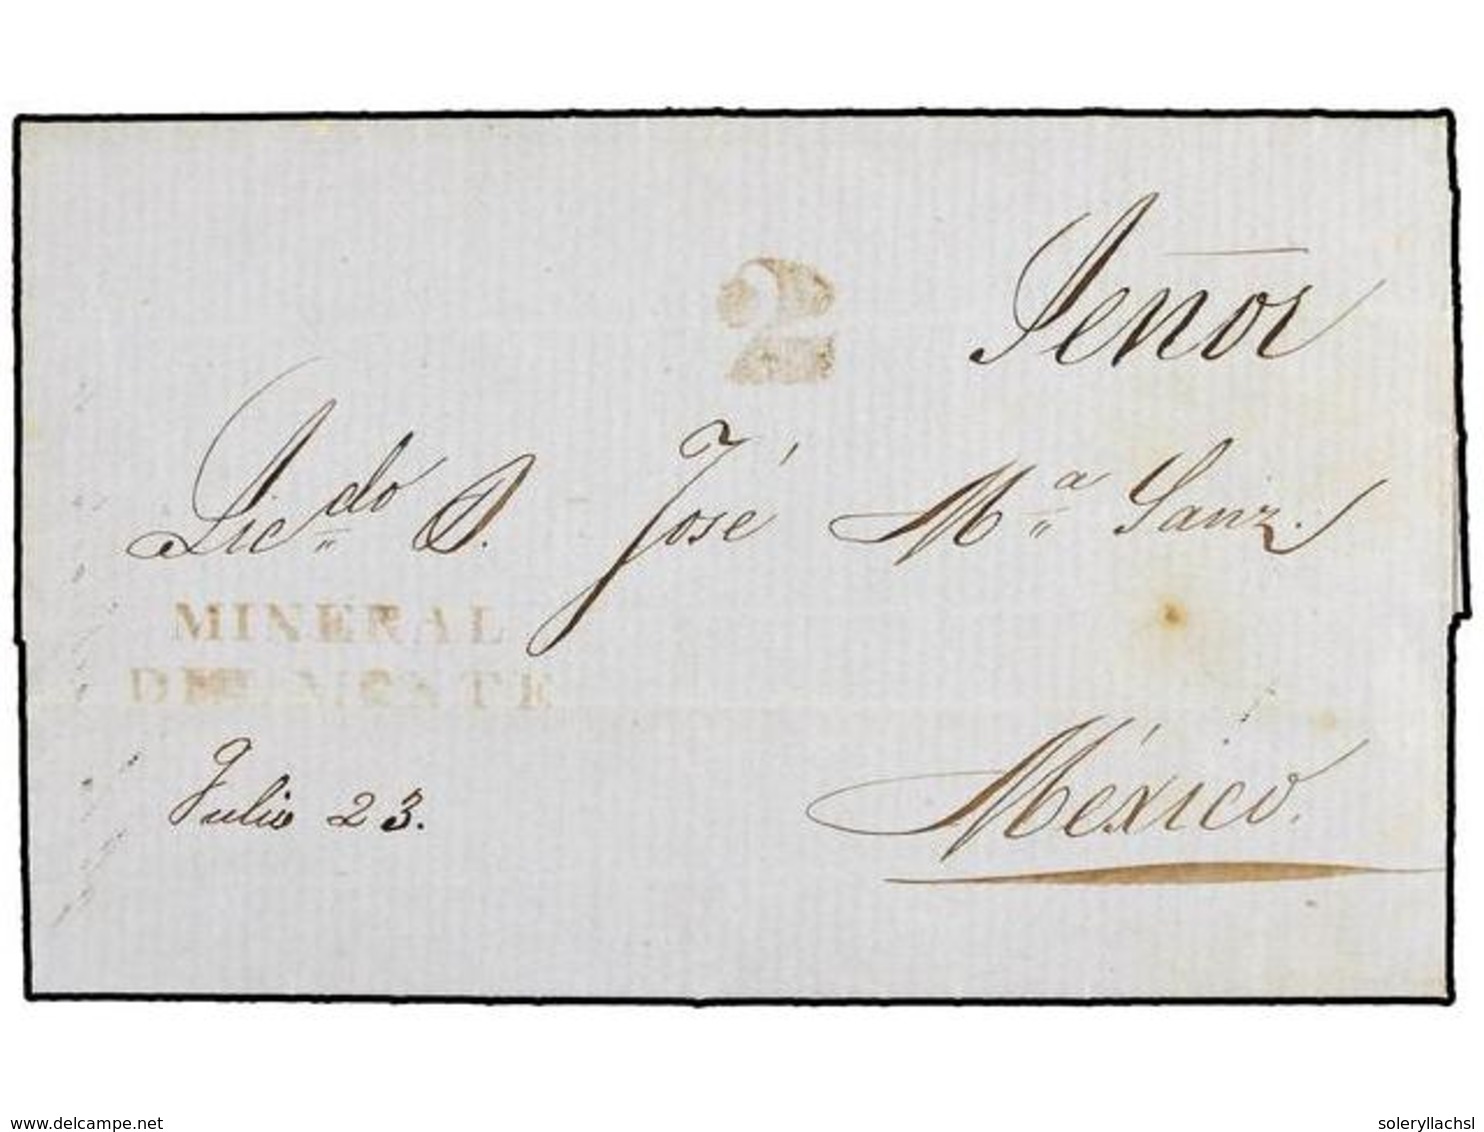 2
Señor
Lic.do D. José M.a Sanz.
MINERAL
DEL MONTE
Julio 23.
México.
delcampe.net
soleryllachsl